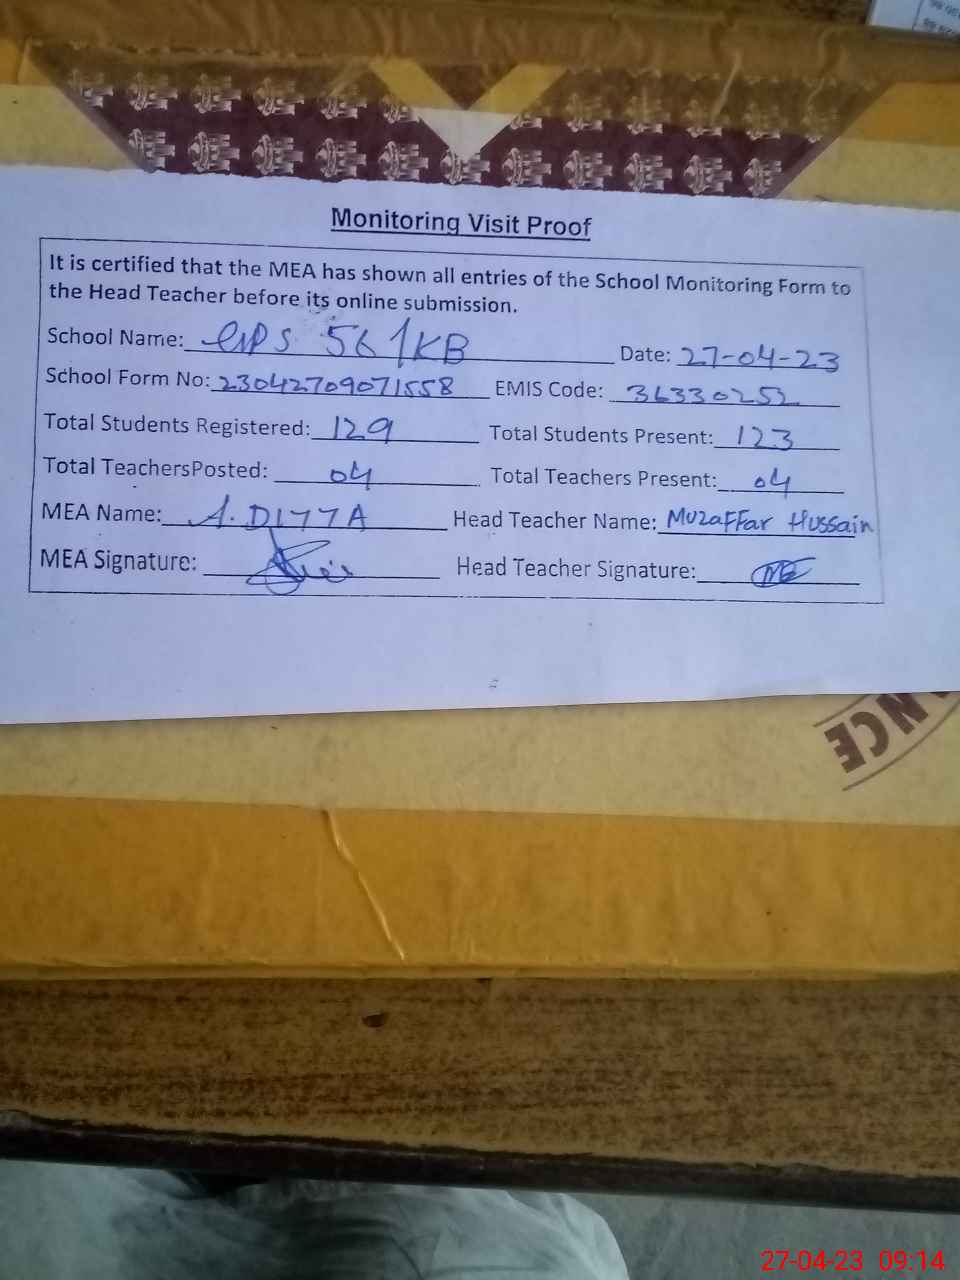 Monitoring Visit Proof
It is certified that the MEA has shown all entries of the School Monitoring Form to
the Head Teacher before its online submission.
School Name: GPS 561KB Date: 27-04-23
School Form No: 23042709071558 EMIS Code: 36330252
Total Students Registered: 129 Total Students Present: 123
Total TeachersPosted: 04 Total Teachers Present: 04
MEA Name: A. DITTA Head Teacher Name: Muzaffar Hussain
MEA Signature: Head Teacher Signature:
NCE
27-04-23 09:14